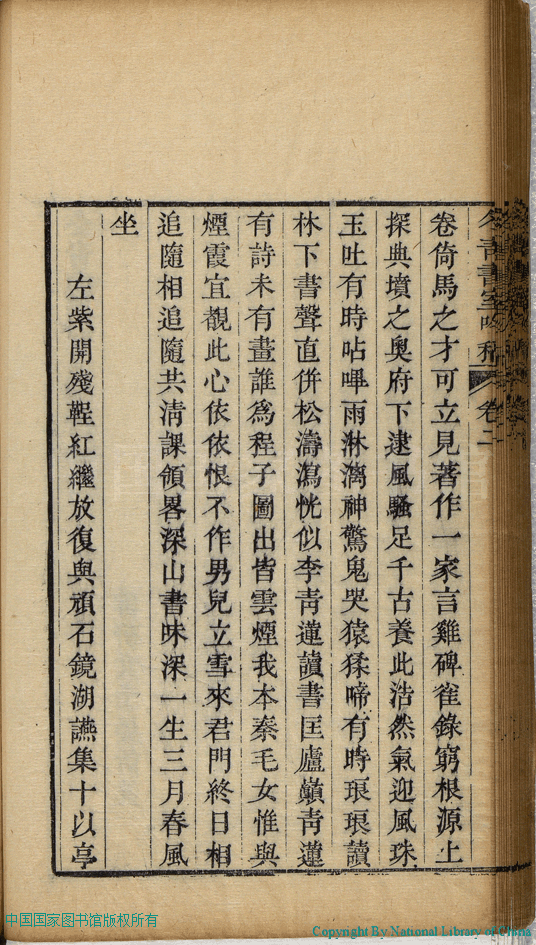 冬青書室吟稿 卷二
卷倚馬之才可立見著作一家言雞碑雀錄窮根源上
探典墳之奧府下逮風騷足千古養此浩然氣迎風珠
玉吐有時呫嗶雨淋漓神驚鬼哭猿猱啼有時琅琅讀
林下書聲直併松濤瀉恍似李靑蓮讀書匡廬巓靑蓮
有詩未有畫誰為程子圖出皆雲煙我本秦毛女惟與
煙霞宜覩此心依依恨不作男兒立雪來君門終日相
追隨相追隨共淸課領畧深山書味深一生三月春風
坐
左紫開殘鞓紅繼放復與頑石鏡湖讌集十以亭
中国国家图书馆版权所有
Copyright By National Library of China